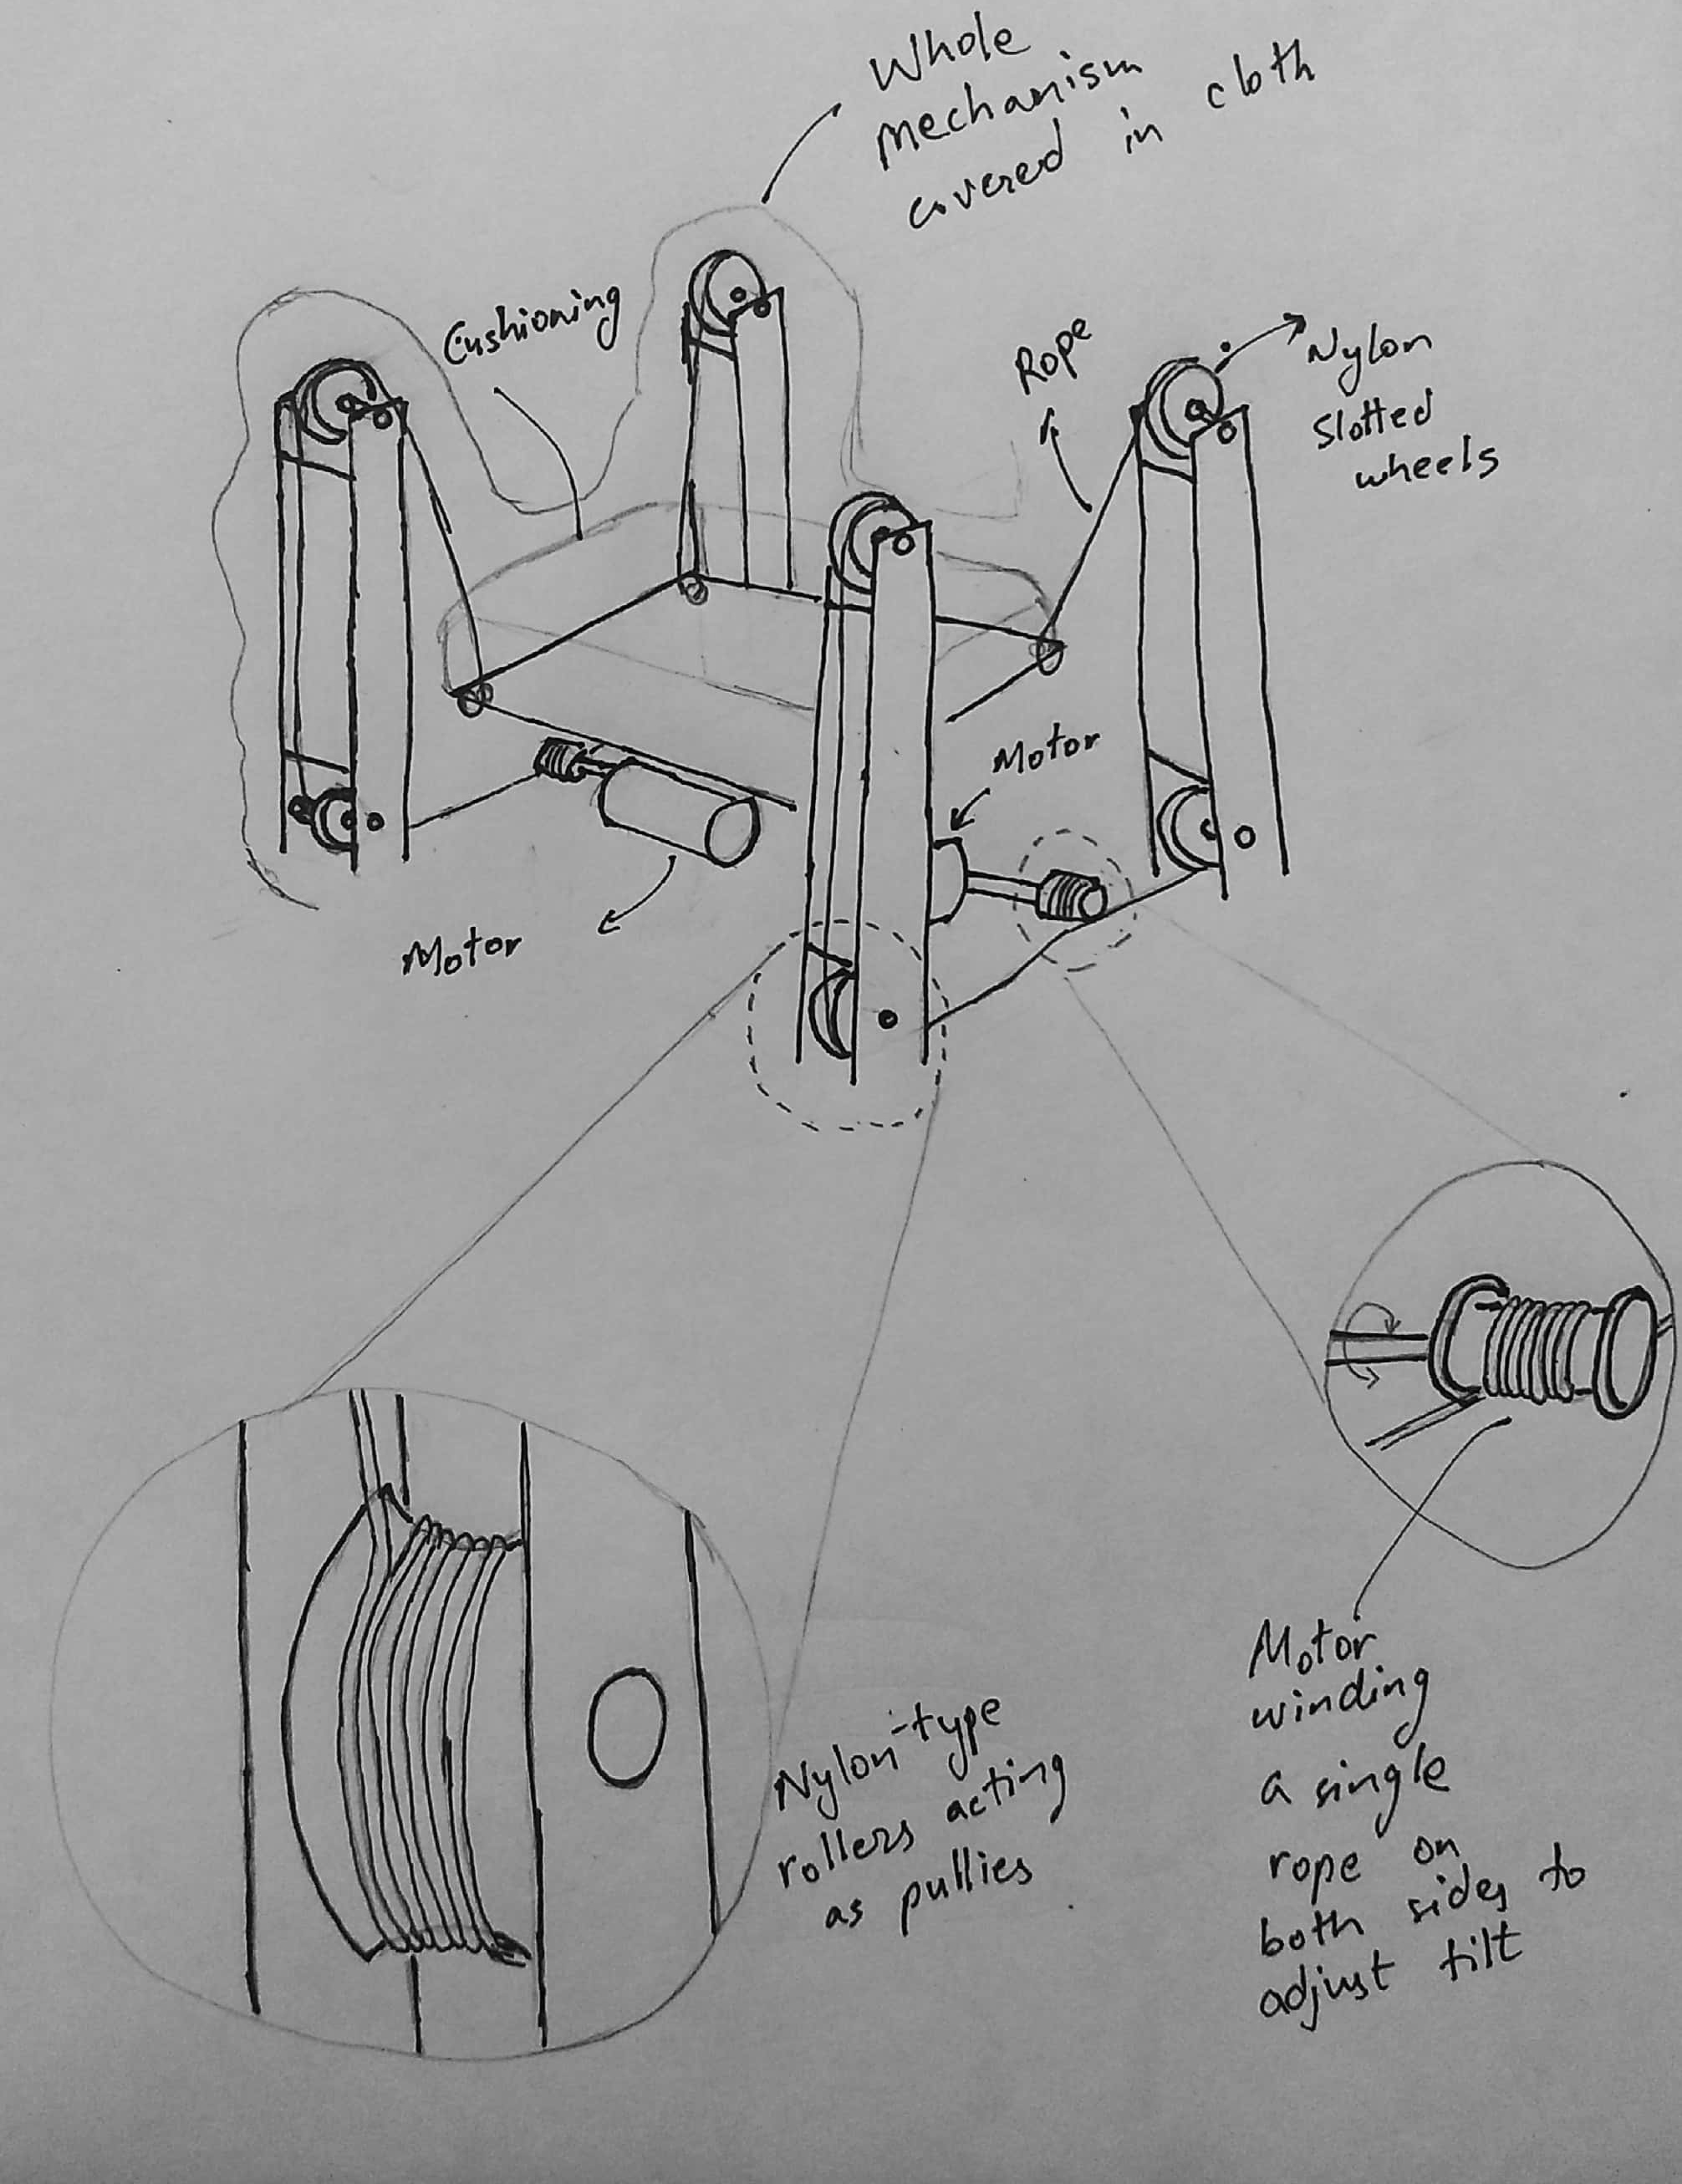 Whole
mechanism
covered in cloth
Cushioning
Rope
Nylon
slotted
wheels
Motor
Motor
Nylon-type
rollers acting
as pullies
Motor
winding
a single
rope on
both sides to
adjust tilt